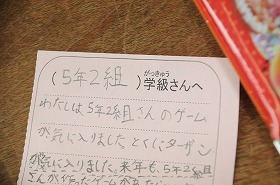 がっきゅう
(5年2組)学級さんへ
わたしは5年2組さんのゲーム
が気に入りました。とくにターザン
が気に入りました。来年も、5年2組
さんが作ったゲームがあ